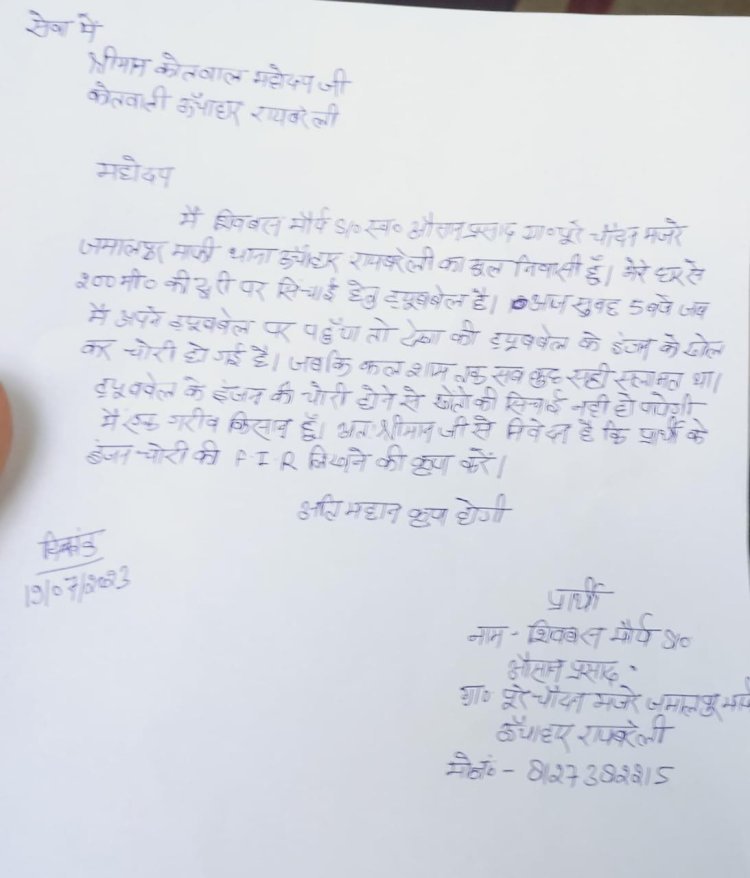 सेवा में
श्रीमान कोतवाल महोदय जी
कोतवाली ऊँचाहार रायबरेली
महोदय
मैं शिवबरन मौर्य S/o स्व० औसान प्रसाद ग्रा० पूरे चौदन मजरे
जमालपुर माफी थाना ऊँचाहार रायबरेली का मूल निवासी हूँ। मेरे घर से
200 मी० की दूरी पर सिचाई हेतु ट्यूबबेल है। आज सुबह 5 बजे जब
मैं अपने ट्यूबबेल पर पहुँचा तो देखा की ट्यूबबेल के इंजन के खोल
कर चोरी हो गई है। जबकि कल शाम तक सब कुछ सही सलामत था।
ट्यूबवेल के इंजन की चोरी होने से खेतो की सिचाई नही हो पायेगी
मैं एक गरीब किसान हूँ। अतः श्रीमान जी से निवेदन है कि प्रार्थी के
इंजन चोरी की F.I.R लिखने की कृपा करें।
अति महान कृपा होगी
दिनांक
19/07/2023
प्रार्थी
नाम - शिवबरन मौर्य S/o
औसान प्रसाद
ग्रा० पूरे चौदन मजरे जमालपुर माफी
ऊँचाहार रायबरेली
मो०नं० - 8127382215